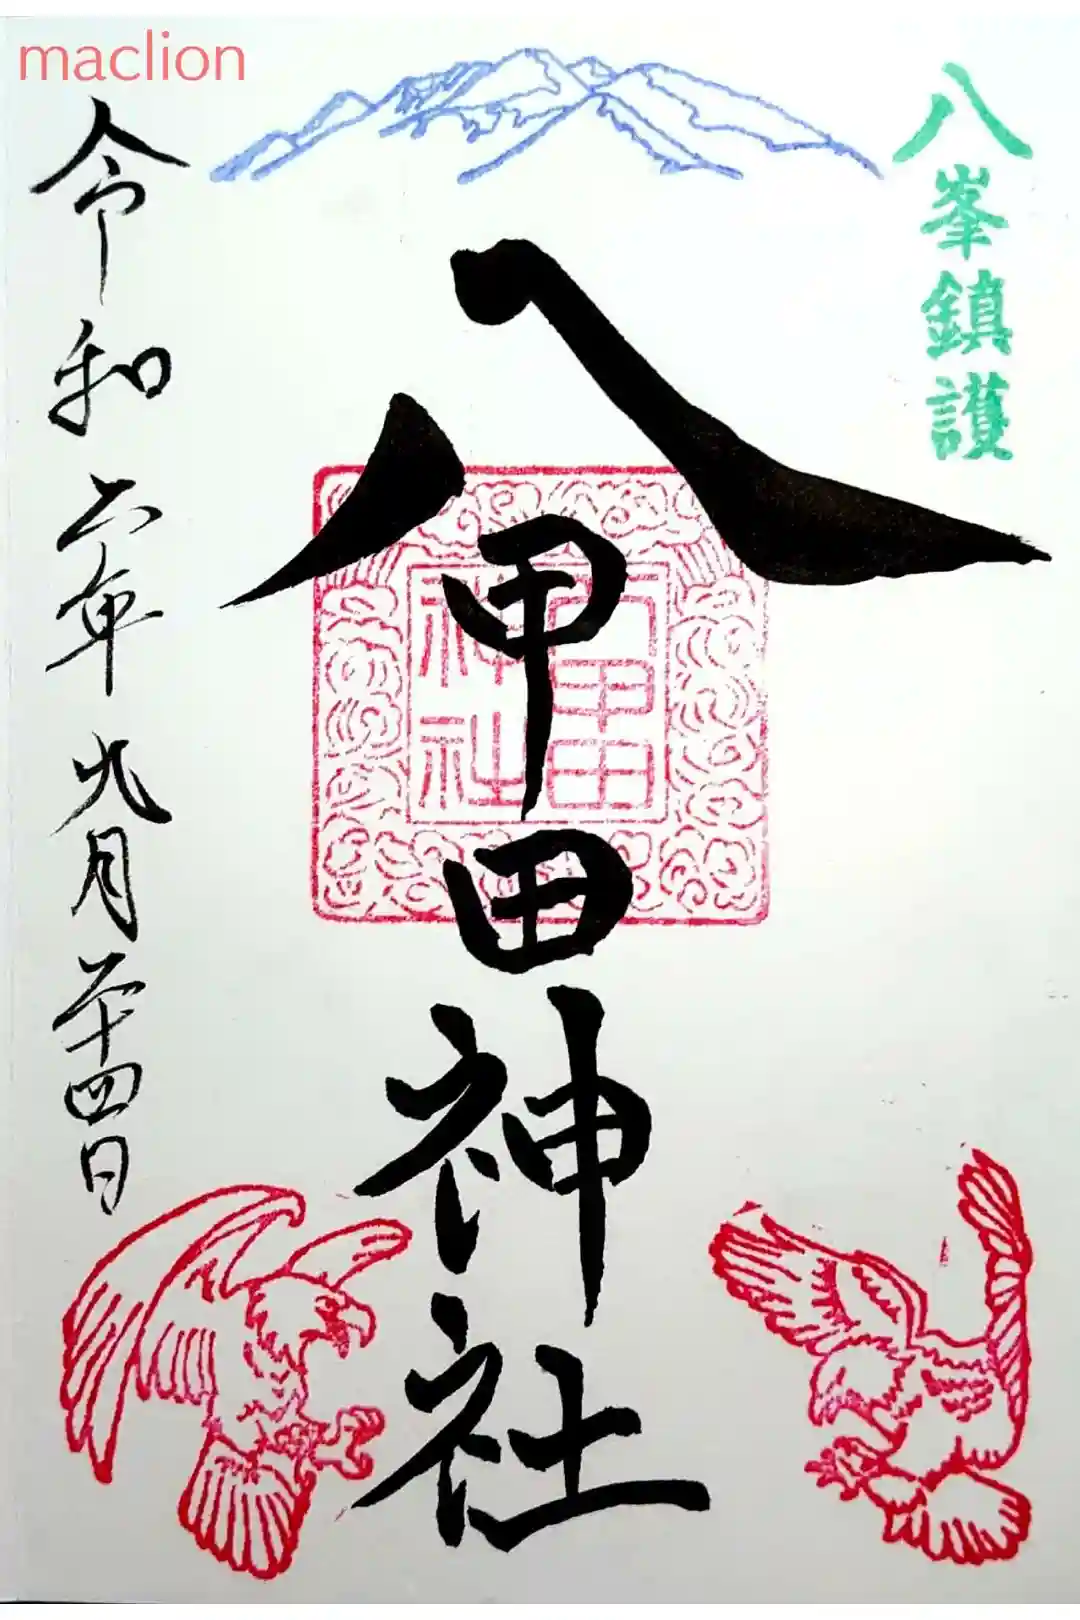 maclion
八峯鎮護
八甲田神社
八甲田
神社
令和六年九月二十四日